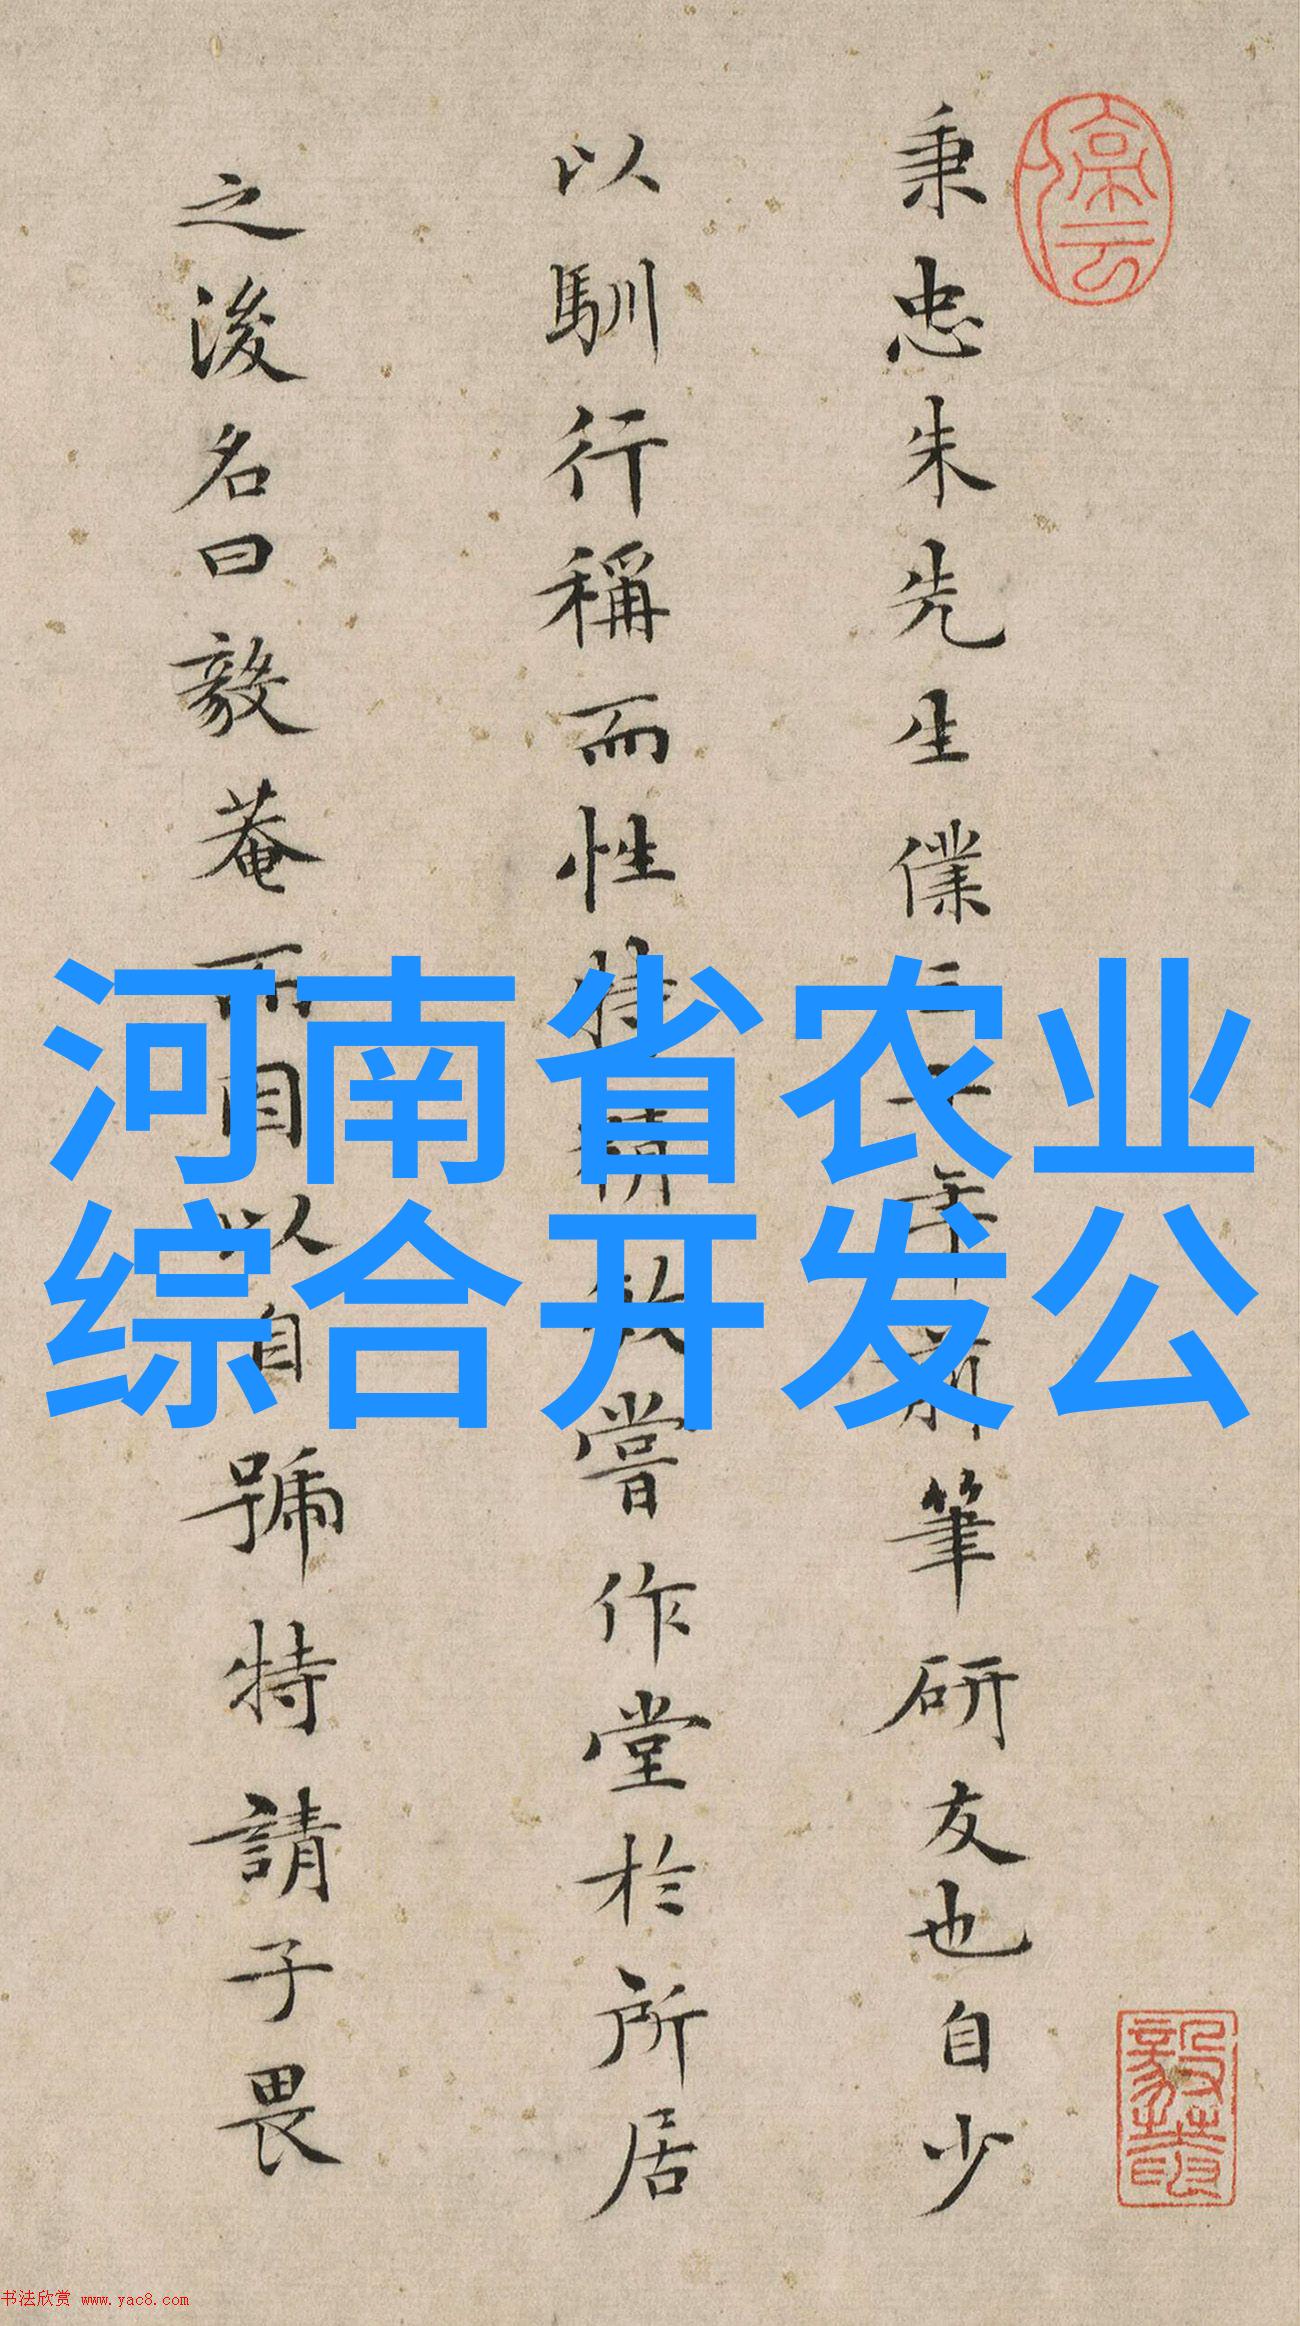 秉忠朱先生僕三十年前筆研友也自少
以馴行稱而性特精敏嘗作堂於所居
之後名曰毅菴而因以自號特請子畏
河南省农业
综合开发公
书法欣赏 www.yac8.com